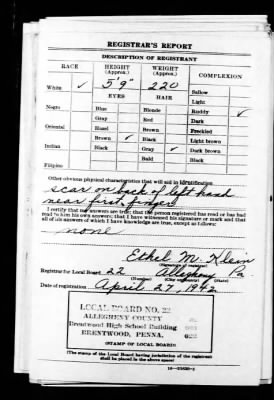 REGISTRAR'S REPORT
DESCRIPTION OF REGISTRANT
RACE HEIGHT (Approx.) WEIGHT (Approx.) COMPLEXION
5'9" 220
Sallow
White ✓
EYES HAIR
Light
Ruddy ✓
Negro Blue Blonde
Gray Red Dark
Oriental Hazel Brown Freckled
Brown ✓ Black Light brown
Indian Black Gray ✓ Dark brown
Bald Black
Filipino
Other obvious physical characteristics that will aid in identification
scar on back of left hand
near first finger
I certify that my answers are true; that the person registered has read or has had
read to him his own answers; that I have witnessed his signature or mark and that
all of his answers of which I have knowledge are true, except as follows:
none
Ethel M. Klein
Registrar for Local Board 22 Allegheny Pa
(Number) (City or county) (State)
Date of registration April 27, 1942
LOCAL BOARD NO. 22
ALLEGHENY COUNTY
Brentwood High School Building
BRENTWOOD, PENNA.
(STAMP OF LOCAL BOARD)
(The stamp of the Local Board having jurisdiction of the registrant
shall be placed in the above space)